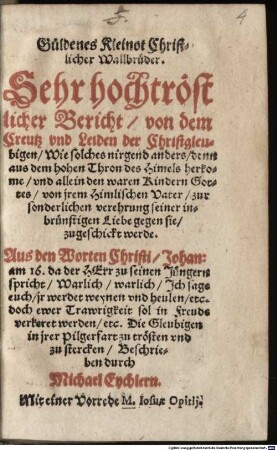 5.
4
Güldenes Kleinot Christ-
licher Wallbrüder.
Sehr hochtröst
licher Bericht / von dem
Creutz vnd Leiden der Christgleu-
bigen / Wie solches nirgend anders / denn
aus dem hohen Thron des Himels herko-
me / vnd allein den waren Kindern Got-
tes / von jrem Himlischen Vater / zur
sonderlichen verehrung seiner in-
brünstigen Liebe gegen sie /
zugeschickt werde.
Aus den Worten Christi / Johan:
am 16. da der HErr zu seinen Jüngern
spricht / Warlich / warlich / Ich sage
euch / jr werdet weynen vnd heulen / etc.
doch ewer Trawrigkeit sol in Freude
verkeret werden / etc. Die Gleubigen
in jrer Pilgerfart zu trösten vnd
zu stercken / Beschrie-
ben durch
Michael Eychlern.
Mit einer Vorrede M. Iosuæ Opitij.